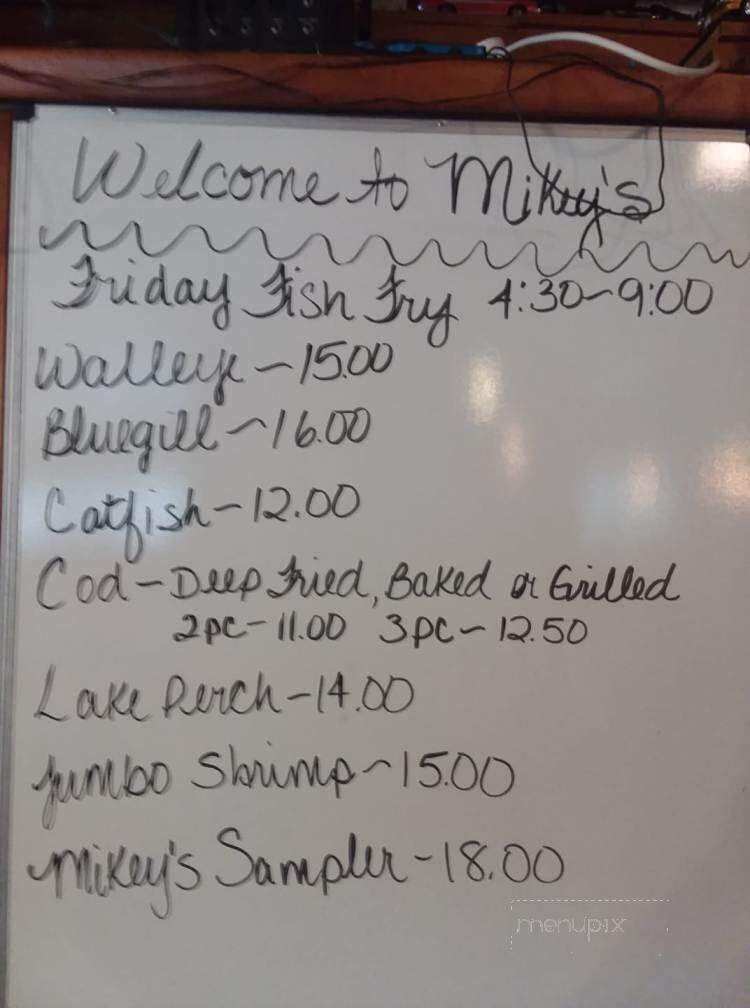 Welcome to Mikey's
Friday Fish Fry 4:30-9:00
Walleye - 15.00
Bluegill - 16.00
Catfish - 12.00
Cod - Deep Fried, Baked or Grilled
2pc - 11.00 3pc - 12.50
Lake Perch - 14.00
Jumbo Shrimp - 15.00
Mikey's Sampler - 18.00
menupix